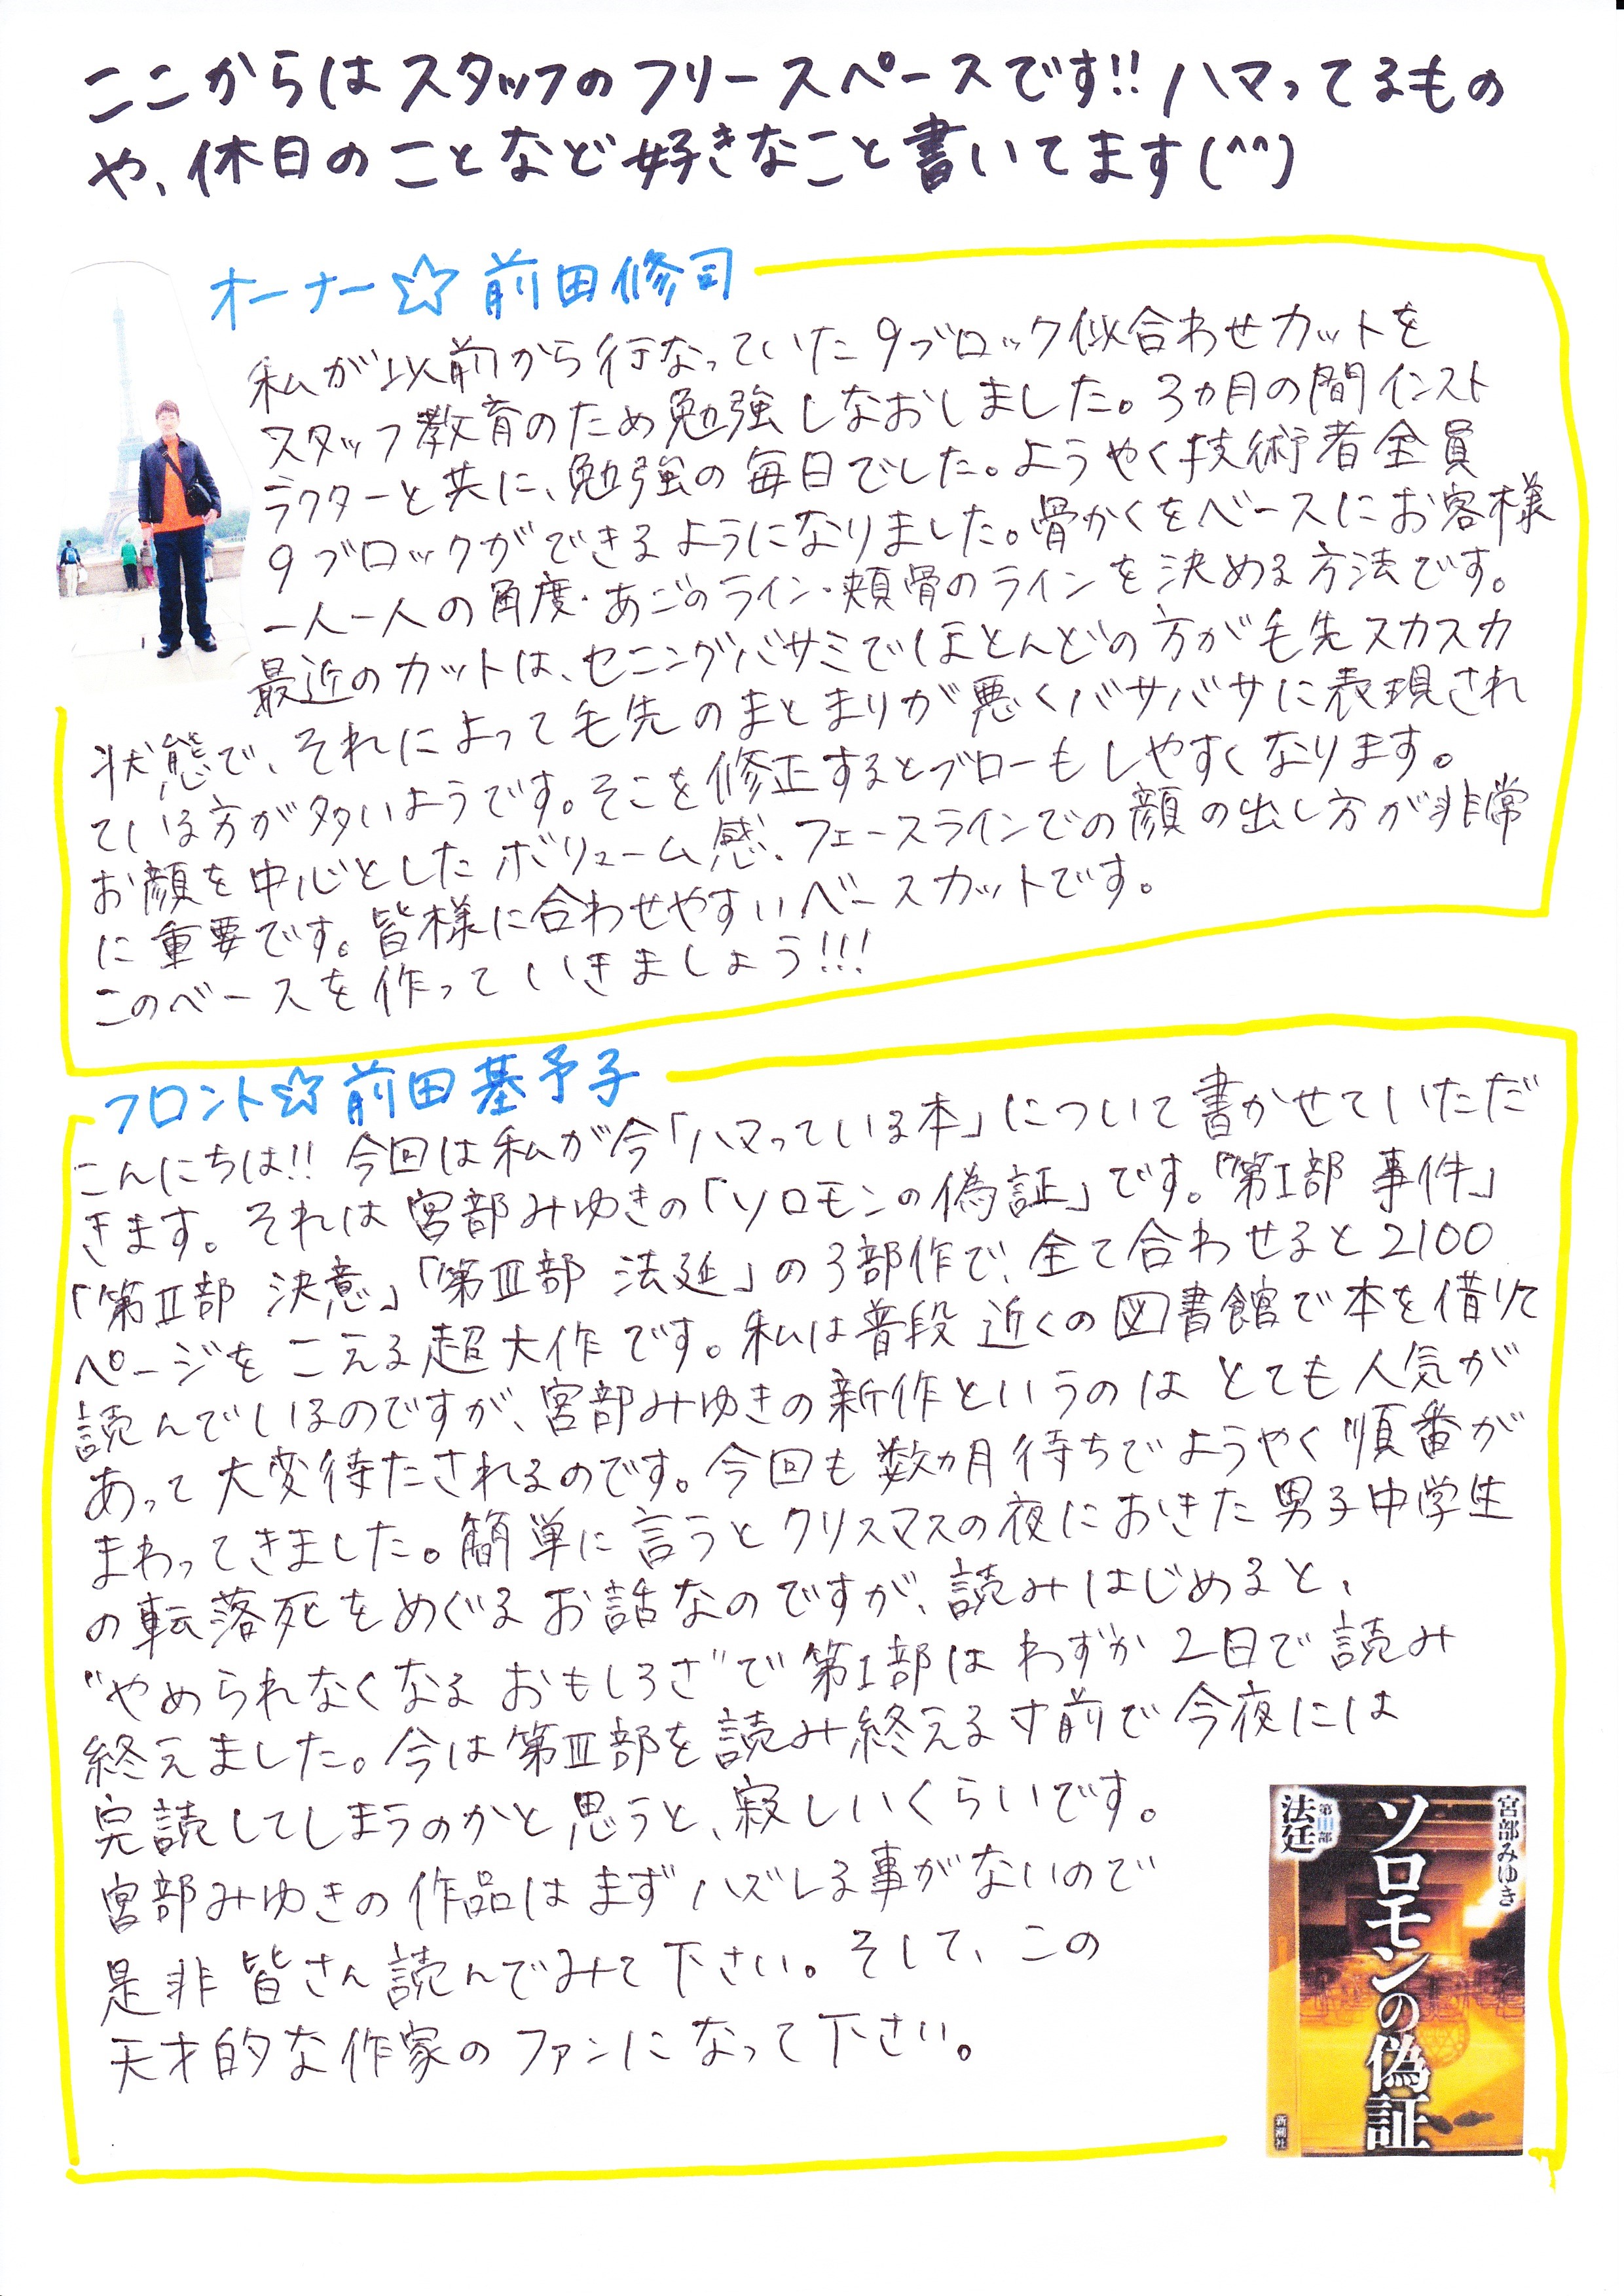 ここからはスタッフのフリースペースです!! ハマってるもの
や、休日のことなど好きなこと書いてます(^^)
オーナー☆前田修司
私が以前から行なっていた9ブロック似合わせカットを
スタッフ教育のため勉強しなおしました。3ヵ月の間インスト
ラクターと共に、勉強の毎日でした。ようやく技術者全員
9ブロックができるようになりました。骨かくをベースにお客様
一人一人の角度・あごのライン・頬骨のラインを決める方法です。
最近のカットは、セニングバサミでほとんどの方が毛先スカスカ
状態で、それによって毛先のまとまりが悪くバサバサに表現され
ている方が多いようです。そこを修正するとブローもしやすくなります。
お顔を中心としたボリューム感、フェースラインでの顔の出し方が非常
に重要です。皆様に合わせやすいベースカットです。
このベースを作っていきましょう!!!
フロント☆前田基予子
こんにちは!! 今回は私が今「ハマっている本」について書かせていただ
きます。それは宮部みゆきの「ソロモンの偽証」です。「第Ⅰ部 事件」
「第Ⅱ部 決意」「第Ⅲ部 法延」の3部作で、全て合わせると2100
ページをこえる超大作です。私は普段近くの図書館で本を借りて
読んでいるのですが、宮部みゆきの新作というのはとても人気が
あって大変待たされるのです。今回も数ヵ月待ちでようやく順番が
まわってきました。簡単に言うとクリスマスの夜におきた男子中学生
の転落死をめぐるお話なのですが、読みはじめると、
"やめられなくなるおもしろさ"で第Ⅰ部はわずか2日で読み
終えました。今は第Ⅲ部を読み終える寸前で今夜には
完読してしまうのかと思うと、寂しいくらいです。
宮部みゆきの作品はまずハズレる事がないので
是非皆さん読んでみて下さい。そして、この
天才的な作家のファンになって下さい。
宮部みゆき
ソロモンの偽証
第Ⅲ部
法廷
新潮社